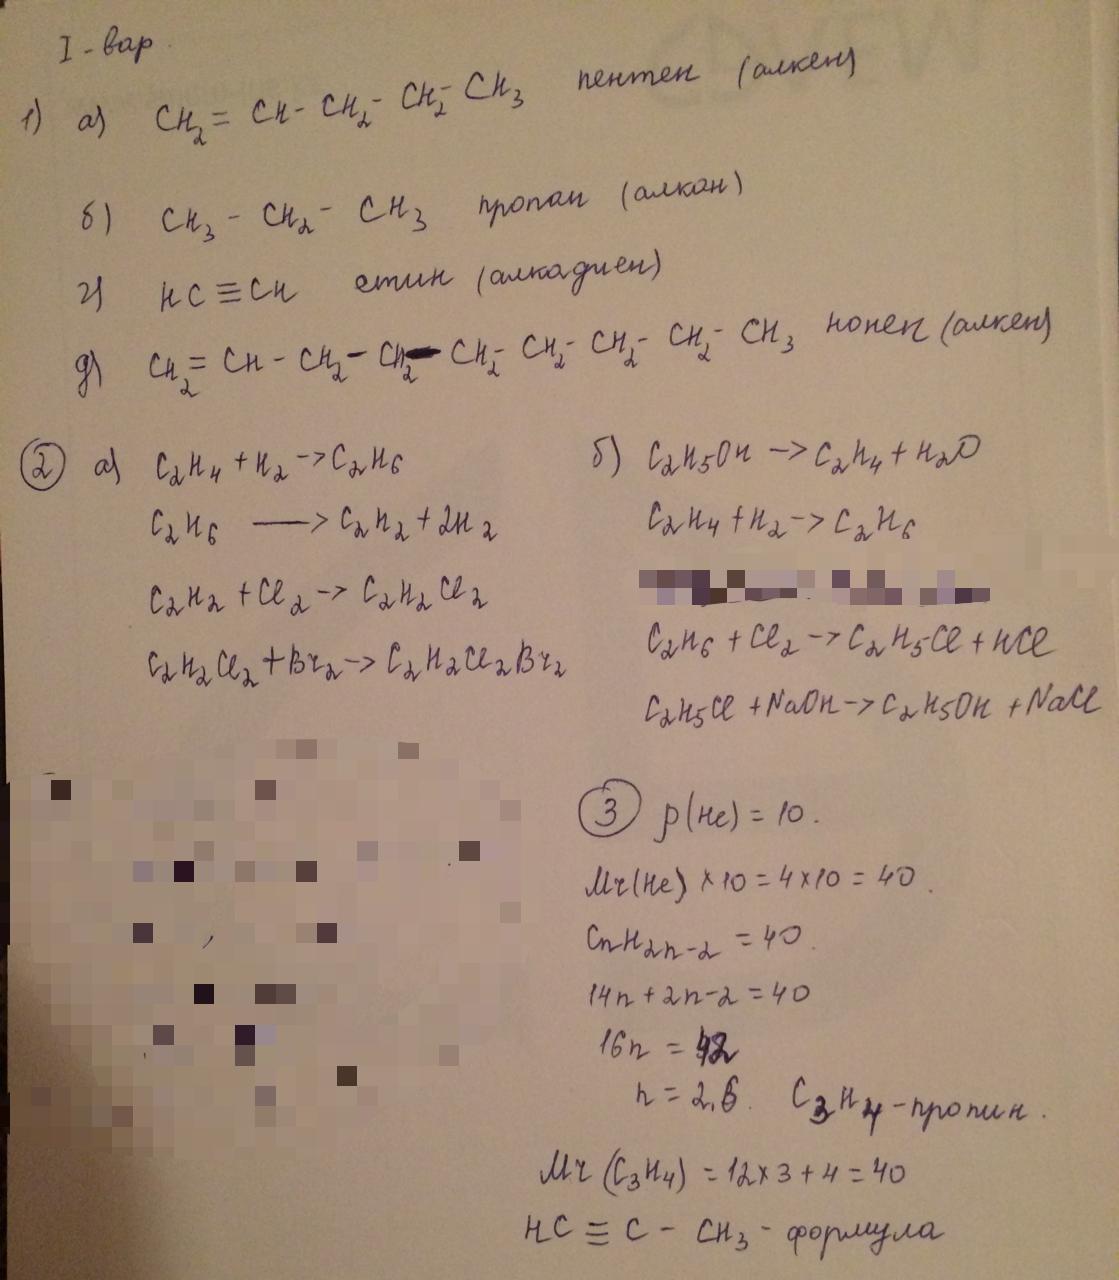 I - вар.
1) а) CH₂ = CH - CH₂ - CH₂ - CH₃ пентен (алкен)
б) CH₃ - CH₂ - CH₃ пропан (алкан)
г) HC ≡ CH етин (алкадиен)
д) CH₂ = CH - CH₂ - CH₂ - CH₂ - CH₂ - CH₂ - CH₂ - CH₃ нонен (алкен)
② а) C₂H₄ + H₂ -> C₂H₆
C₂H₆ -> C₂H₂ + 2H₂
C₂H₂ + Cl₂ -> C₂H₂Cl₂
C₂H₂Cl₂ + Br₂ -> C₂H₂Cl₂Br₂
б) C₂H₅OH -> C₂H₄ + H₂O
C₂H₄ + H₂ -> C₂H₆
C₂H₆ + Cl₂ -> C₂H₅Cl + HCl
C₂H₅Cl + NaOH -> C₂H₅OH + NaCl
③ p(He) = 10.
Mr(He) × 10 = 4 × 10 = 40.
CnH2n-2 = 40.
14n + 2n - 2 = 40
16n = 42
n = 2,6. C₃H₄ - пропин.
Mr (C₃H₄) = 12 × 3 + 4 = 40
HC ≡ C - CH₃ - формула